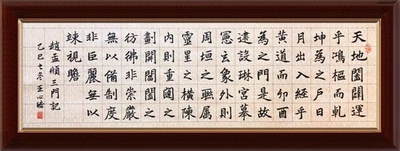 天地闔闢運
乎鴻樞而乾
坤為之戶日
月出入經乎
黃道而卯酉
為之門是故
建設琳宮摹
憲玄象外則
周垣之聯属
靈星之橫陳
內則重闥之
劃開閶闔之
彷彿非崇嚴
無以備制度
非巨麗無以
竦視瞻
趙孟頫三門記
乙巳之冬王心